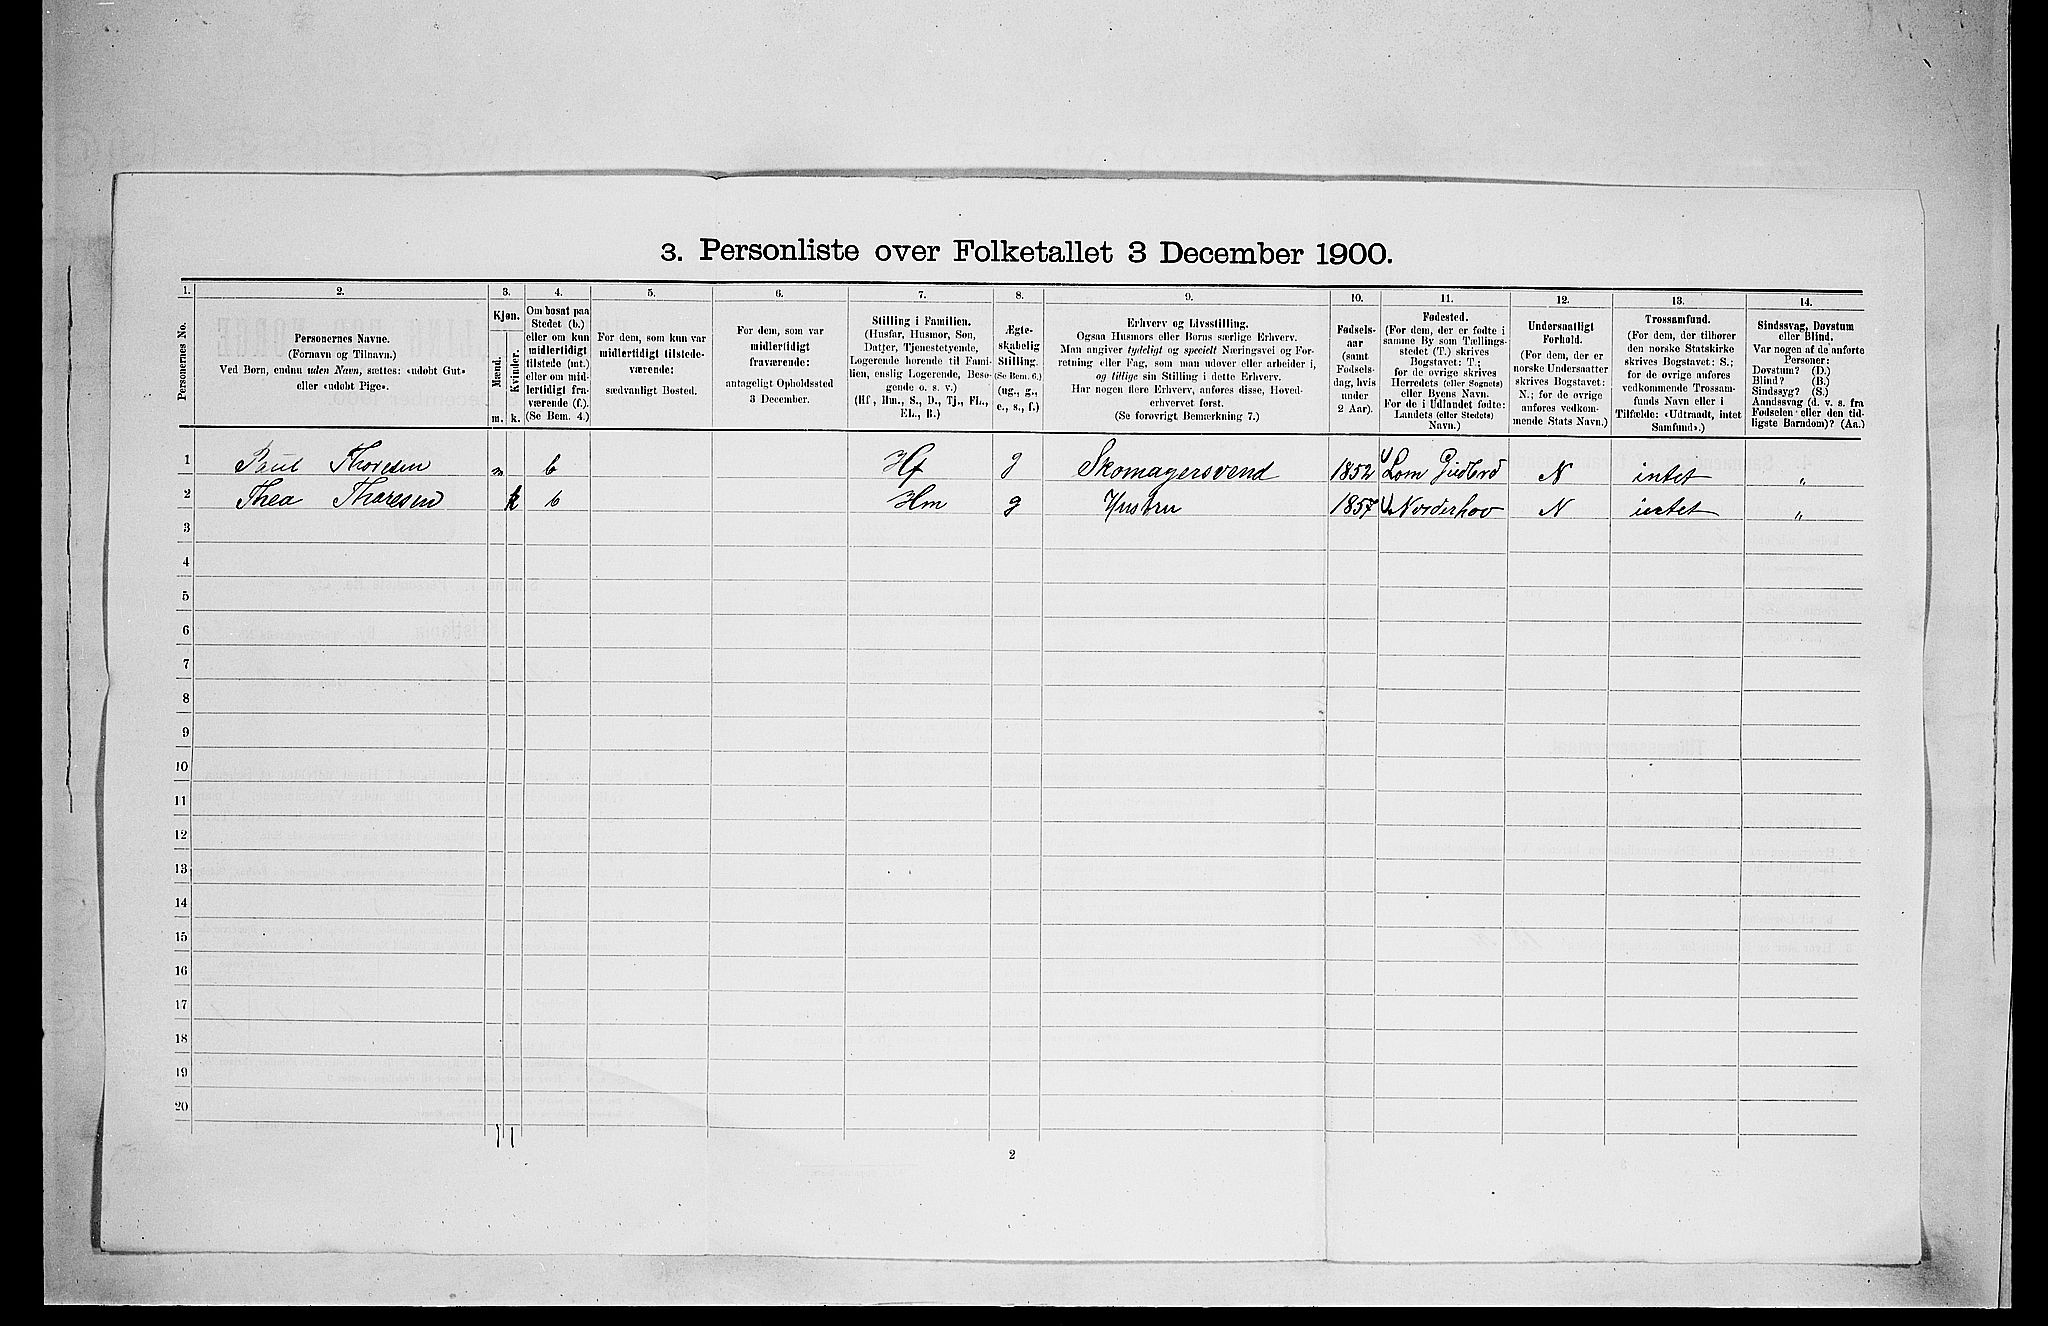 3. Personliste over Folketallet 3 December 1900.
1. 2. 3. 4. 5. 6. 7. 8. 9. 10. 11. 12. 13. 14.
Personernes No.
Personernes Navne.
(Fornavn og Tilnavn.)
Ved Børn, endnu uden Navn, sættes: «udøbt Gut»
eller «udøbt Pige».
Kjøn.
Mænd.
Kvinder.
m. k.
Om bosat paa
Stedet (b.)
eller om kun
midlertidigt
tilstede (mt.)
eller om mid-
lertidigt fra-
værende (f.).
(Se Bem. 4.)
For dem, som kun var
midlertidigt tilstede-
værende:
sædvanligt Bosted.
For dem, som var
midlertidigt
fraværende:
antageligt Opholdssted
3 December.
Stilling i Familien.
(Husfar, Husmor, Søn,
Datter, Tjenestetyende,
Logerende hørende til Fami-
lien, enslig Logerende, Besø-
gende o. s. v.)
(Hf, Hm., S., D., Tj., FL.,
EL., B.)
Ægte-
skabelig
Stilling.
(Se Bem. 6.)
(ug., g.,
e., s., f.)
Erhverv og Livsstilling.
Ogsaa Husmors eller Børns særlige Erhverv.
Man angiver tydeligt og specielt Næringsvei og For-
retning eller Fag, som man udøver eller arbeider i,
og tillige sin Stilling i dette Erhverv.
Har nogen flere Erhverv, anføres disse, Hoved-
erhvervet først.
(Se forøvrigt Bemærkning 7.)
Fødsels-
aar
(samt
Fødsels-
dag, hvis
under
2 Aar).
Fødested.
(For dem, der er fødte i
samme By som Tællings-
stedet (T.) skrives
Bogstavet: T.;
for de øvrige skrives
Herredets (eller Sognets)
eller Byens Navn.
For de i Udlandet fødte:
Landets (eller Stedets)
Navn.)
Undersaatligt
Forhold.
(For dem, der er
norske Undersaatter
skrives Bogstavet:
N.; for de øvrige
anføres vedkom-
mende Stats Navn.)
Trossamfund.
(For dem, der tilhører
den norske Statskirke
skrives Bogstavet: S.;
for de øvrige anføres
vedkommende Trossam-
funds Navn eller i
Tilfælde: «Udtraadt, intet
Samfund».)
Sindssvag, Døvstum
eller Blind.
Var nogen af de anførte
Personer:
Døvstum? (D.)
Blind? (B.)
Sindssyg? (S.)
Aandssvag (d. v. s. fra
Fødselen eller den tid-
ligste Barndom)? (Aa.)
1 Paul Thoresen m b Hf g Skomagersvend 1852 Lom Gudbrd N intet "
2 Thea Thoresen k b Hm g Hustru 1857 Norderhov N intet "
3
4
5
6
7
8
9
10
11
12
13
14
15
16
17
18
19
20
1 1
2